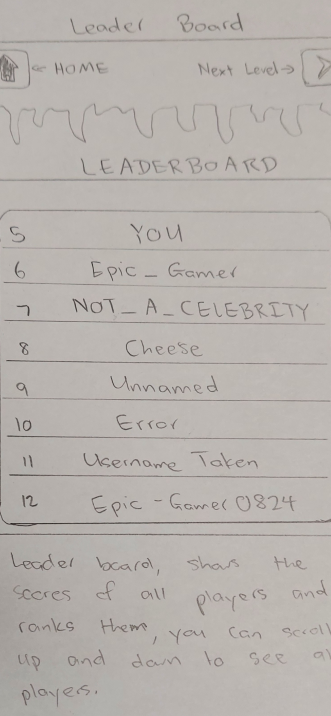 Leader Board
← HOME Next Level→
LEADERBOARD
5 YOU
6 Epic_Gamer
7 NOT_A_CELEBRITY
8 Cheese
9 Unnamed
10 Error
11 Username Taken
12 Epic-Gamer0824
Leader board, shows the
scores of all players and
ranks them, you can scroll
up and down to see
players.